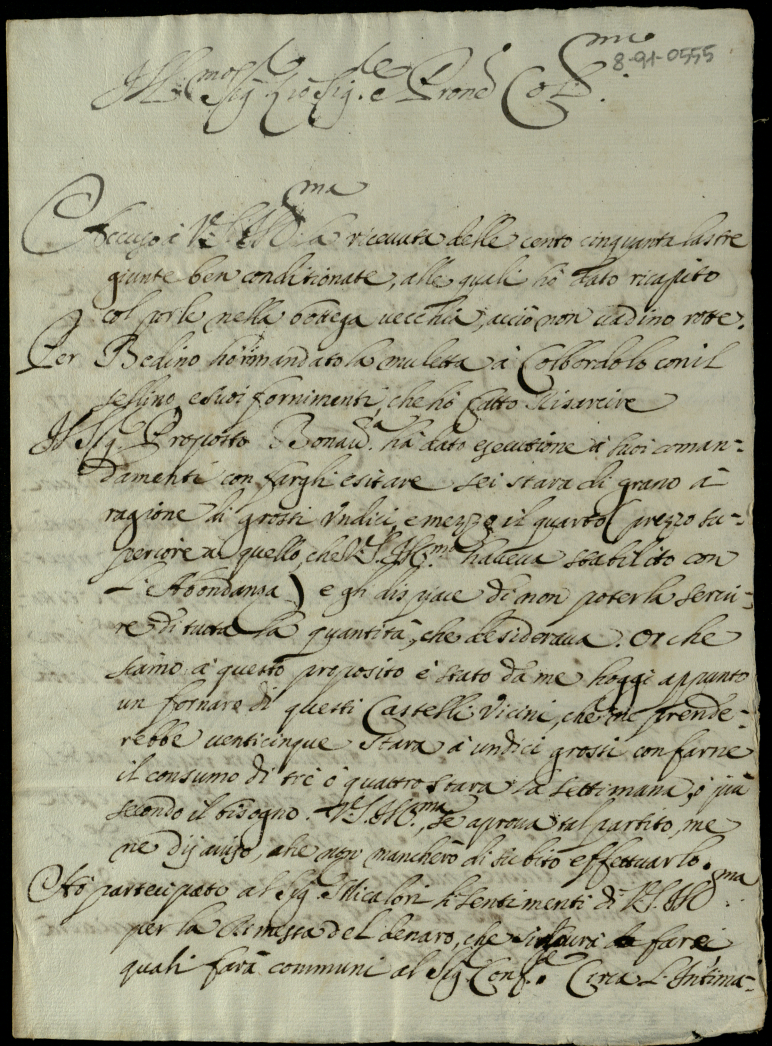 8-91-0555
Ill.mo Sig. Zio Sig.re e Prone Col.mo
Accuso à V.S. Ill.ma la ricevuta delle cento cinquanta lastre
giunte ben conditionate, alle quali hò dato ricapito
col porle nella bottega vecchia, acciò non vadino rotte.
Per Bedino hò rimandato la muletta à Colbordolo con il
sellino, e suoi fornimenti, che hò fatto risarcire
Il Sig. Proposto Bonav.a hà dato esecutione à suoi coman-
damenti con fargli esitare sei stara di grano à
ragione di grossi undici, e mezzo il quarto (prezzo su-
periore à quello, che V.S. Ill.ma haveva stabilito con
l'Abondanza) e gli dispiace di non poterla servi-
re di tutta la quantità, che desiderava. Or che
siamo à questo proposito è stato da me hoggi appunto
un fornaro di questi Castelli vicini, che ne prende-
rebbe venticinque stara à undici grossi con farne
il consumo di trè ò quattro stara la settimana, ò più
secondo il bisogno. V.S. Ill.ma, se aprova tal partito, me
ne dij aviso, che non mancherò di subito effettuarlo.
Hò partecipato al Sig. Micalori li sentimenti di V.S. Ill.ma
per la rimessa del denaro, che fare i
quali farà communi al Sig. Conf.re Circa l'intima-